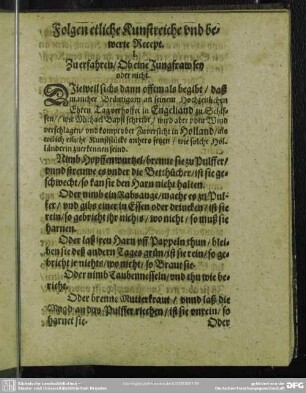 Folgen etliche Kunstreiche vnd be-
werte Recept.
I.
Zu erfahren / Ob eine Jungfraw sey
oder nicht.
DJeweil sichs dann offtmals begibt / daß
mancher Bräutigam an seinem Hochzeitlichen
Ehren Tag verhoffet in Engelland zu Schif-
fen / wie Michael Bapst schreibt / wird aber vom Wind
verschlagen / vnd kompt ober Zuversicht in Holland / als
wil ich etliche Kunststück anhero setzen / wie solche Hol-
länderin zuerkennen seind.
Nimb Hopffenwurtzel / brenne sie zu Pulffer /
vnd strewe es vnder die Betthücher / ist sie ge-
schwecht / so kan sie den Harn nicht halten.
Oder nimb ein Rabsauge / mache es zu Pul-
fer / vnd gibs einer in Essen oder drincken / ist sie
rein / so gebricht ihr nichts / wo nicht / so muß sie
harnen.
Oder laß jren Harn vff Pappeln thun / blei-
ben sie deß andern Tages grün / ist sie rein / so ge-
bricht jr nichts / wo nicht / so Braut sie.
Oder nimb Taubenneisseln / vnd thu wie be-
richt.
Oder brenne Mutterkraut / vnnd laß die
Magd an das Pulffer riechen / ist sie vnrein / so
harnet sie.
Oder